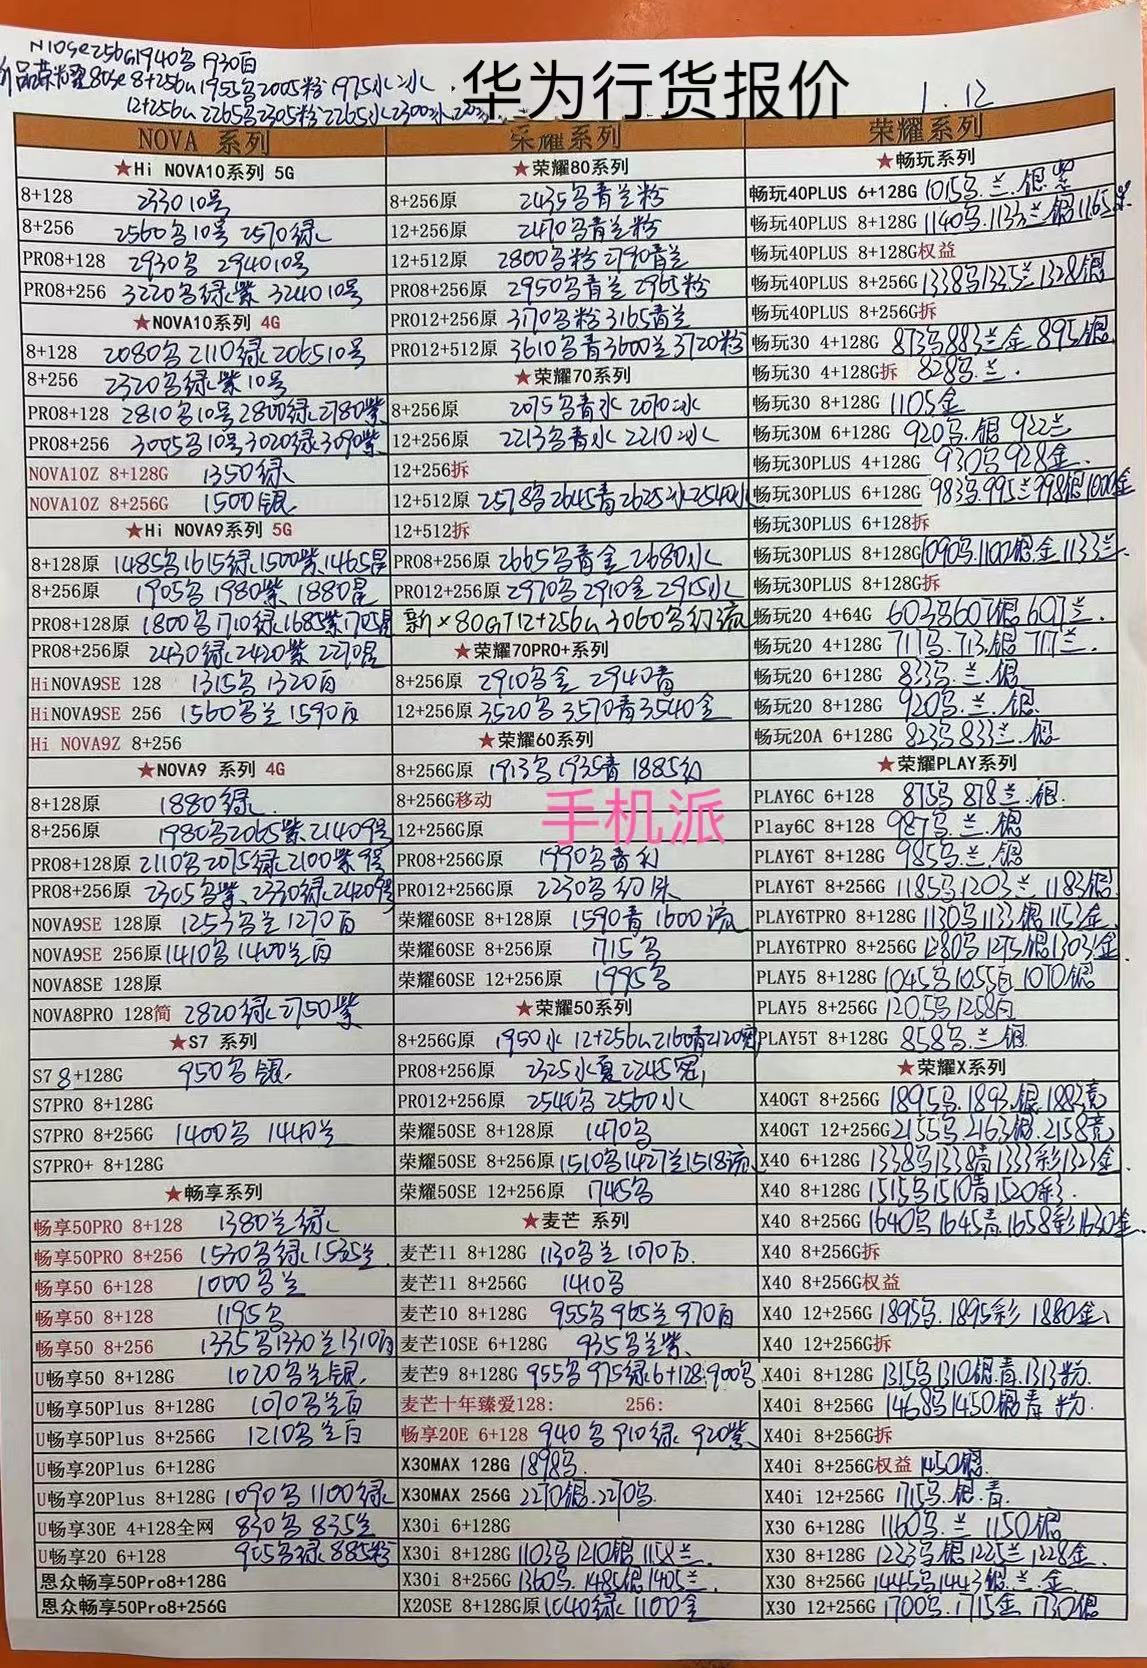 N10se256G1940乌 1930白
新品荣耀80se 8+256G 1955乌2005粉1975水 冰
12+256G 2265乌2305粉2265水2300冰
华为行货报价
1.12
NOVA 系列
★Hi NOVA10系列 5G
8+128 2330 10号
8+256 2560乌10号 2570绿
PRO8+128 2930乌 2940 10号
PRO8+256 3220乌绿紫 3240 10号
★NOVA10系列 4G
8+128 2080乌 2110绿 2065 10号
8+256 2320乌绿紫 10号
PRO8+128 2810乌10号 2800绿 2780紫
PRO8+256 3005乌10号 3020绿 3090紫
NOVA10Z 8+128G 1350绿
NOVA10Z 8+256G 1500银
★Hi NOVA9系列 5G
8+128原 1485乌1615绿1500紫1465星
8+256原 1905乌 1980紫 1880星
PRO8+128原 1800乌1710绿1685紫1705星
PRO8+256原 2430绿2420紫 2270星
HiNOVA9SE 128 1315乌 1320白
HiNOVA9SE 256 1560乌兰 1590白
Hi NOVA9Z 8+256
★NOVA9 系列 4G
8+128原 1880绿
8+256原 1980乌2065紫2140 9号
PRO8+128原 2110乌2075绿2100紫9号
PRO8+256原 2305乌紫 2330绿2420 9号
NOVA9SE 128原 1253乌兰 1270白
NOVA9SE 256原 1410乌 1400兰白
NOVA8SE 128原
NOVA8PRO 128简 2820绿 2750紫
★S7 系列
S7 8+128G 950乌银
S7PRO 8+128G
S7PRO 8+256G 1400乌 1440兰
S7PRO+ 8+128G
★畅享系列
畅享50PRO 8+128 1380兰绿
畅享50PRO 8+256 1530乌绿 1535兰
畅享50 6+128 1000乌兰
畅享50 8+128 1195乌
畅享50 8+256 1335乌1330兰1310白
U畅享50 8+128G 1020乌兰银
U畅享50Plus 8+128G 1070乌兰白
U畅享50Plus 8+256G 1210乌兰白
U畅享20Plus 6+128G
U畅享20Plus 8+128G 1090乌 1100绿
U畅享30E 4+128全网 830乌 835兰
U畅享20 6+128 905乌绿 885粉
恩众畅享50Pro8+128G
恩众畅享50Pro8+256G
荣耀系列
★荣耀80系列
8+256原 2435乌青兰粉
12+256原 2470乌青兰粉
12+512原 2800乌粉 2790青兰
PRO8+256原 2950乌青兰 2965粉
PRO12+256原 3170乌粉 3165青兰
PRO12+512原 3610乌青3600兰3720粉
★荣耀70系列
8+256原 2075乌青水 2070冰
12+256原 2213乌青水 2210冰
12+256拆
12+512原 2578乌2645青2625冰2540水
12+512拆
PRO8+256原 2665乌青金 2680水
PRO12+256原 2970乌 2910金 2915水
新X80GT12+256G 3060乌幻流
★荣耀70PRO+系列
8+256原 2910乌金 2940青
12+256原 3520乌 3570青3540金
★荣耀60系列
8+256G原 1913乌 1935青 1885幻
8+256G移动
手机派
12+256G原
PRO8+256G原 1990乌青幻
PRO12+256G原 2230乌幻
荣耀60SE 8+128原 1590青 1600流
荣耀60SE 8+256原 1715乌
荣耀60SE 12+256原 1995乌
★荣耀50系列
8+256G原 1950水 12+256G2160青2120冠
PRO8+256原 2325水夏2245冠
PRO12+256原 2540乌 2560水
荣耀50SE 8+128原 1470乌
荣耀50SE 8+256原 1510乌1427兰1518流
荣耀50SE 12+256原 1745乌
★麦芒 系列
麦芒11 8+128G 1130乌兰 1070白
麦芒11 8+256G 1410乌
麦芒10 8+128G 955乌965兰970白
麦芒10SE 6+128G 935乌兰紫
麦芒9 8+128G 955乌 975绿 6+128:900乌
麦芒十年臻爱128: 256:
畅享20E 6+128 940乌 910绿 920紫
X30MAX 128G 1898乌
X30MAX 256G 2270银.2270乌
X30i 6+128G
X30i 8+128G 1103乌 1210银 1158兰
X30i 8+256G 1360乌.1485银1405兰
X20SE 8+128G原 1040绿 1100金
荣耀系列
★畅玩系列
畅玩40PLUS 6+128G 1015乌.兰.银.紫
畅玩40PLUS 8+128G 1140乌.1133兰银1165紫
畅玩40PLUS 8+128G权益
畅玩40PLUS 8+256G 1338乌1335兰1328银
畅玩40PLUS 8+256G拆
畅玩30 4+128G 873乌883兰金 895银
畅玩30 4+128G拆 828乌.兰.
畅玩30 8+128G 1105金
畅玩30M 6+128G 920乌.银 922兰
畅玩30PLUS 4+128G 930乌 928金.
畅玩30PLUS 6+128G 983乌.995兰998银1000金
畅玩30PLUS 6+128拆
畅玩30PLUS 8+128G 1090乌.1100银.金 1133兰
畅玩30PLUS 8+128G拆
畅玩20 4+64G 603乌607银 607兰.
畅玩20 4+128G 717乌.713.银 717兰.
畅玩20 6+128G 833乌.兰.银
畅玩20 8+128G 920乌.兰.银
畅玩20A 6+128G 823乌833兰.银
★荣耀PLAY系列
PLAY6C 6+128 875乌 878兰.银.
Play6C 8+128 987乌.兰.银
PLAY6T 8+128G 985乌.兰.银
PLAY6T 8+256G 1185乌1203兰.1183银
PLAY6TPRO 8+128G 1130乌1133银 1153金
PLAY6TPRO 8+256G 1280乌1275银1303金
PLAY5 8+128G 1045乌1055白 1070银
PLAY5 8+256G 1205乌1258白
PLAY5T 8+128G 858乌.兰.银
★荣耀X系列
X40GT 8+256G 1895乌.1893.银.1883竞
X40GT 12+256G 2155乌.2163银.2158竞
X40 6+128G 1338乌1338青1333彩1323金
X40 8+128G 1515乌1510青1520彩.
X40 8+256G 1640乌1645青.1658彩1630金
X40 8+256G拆
X40 8+256G权益
X40 12+256G 1895乌.1895彩 1880金
X40 12+256G拆
X40i 8+128G 1315乌1310银.青.1313粉.
X40i 8+256G 1468乌1450银青 粉.
X40i 8+256G拆
X40i 8+256G权益 1450银.
X40i 12+256G 1715乌.银.青.
X30 6+128G 1160乌.兰 1150银
X30 8+128G 1223乌银1225兰1228金.
X30 8+256G 1445乌1443银.兰.金.
X30 12+256G 1700乌.1715金 1730银